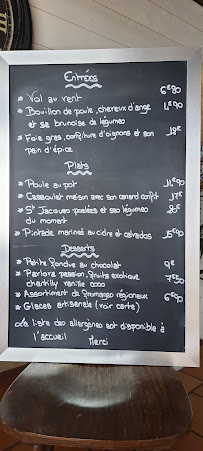 Entrées
* Vol au vent 6€90
* Bouillon de poule, cheveux d'ange
et sa brunoise de légumes 4€90
* Foie gras, confiture d'oignons et son
pain d'épice
Plats
* Poule au pot 11€90
* Cassoulet maison avec son canard confit 17€
* St Jacques poelées et ses légumes
du moment
* Pintade mariné au cidre et calvados 15€90
Desserts
* Petite fondue au chocolat 9€
* Pavlova passion, fruits exotique
chantilly vanille coco 7€50
* Assortiment de fromages régionaux 6€90
* Glaces artisanale (voir carte)
La liste des allergènes est disponible à
l'accueil Merci